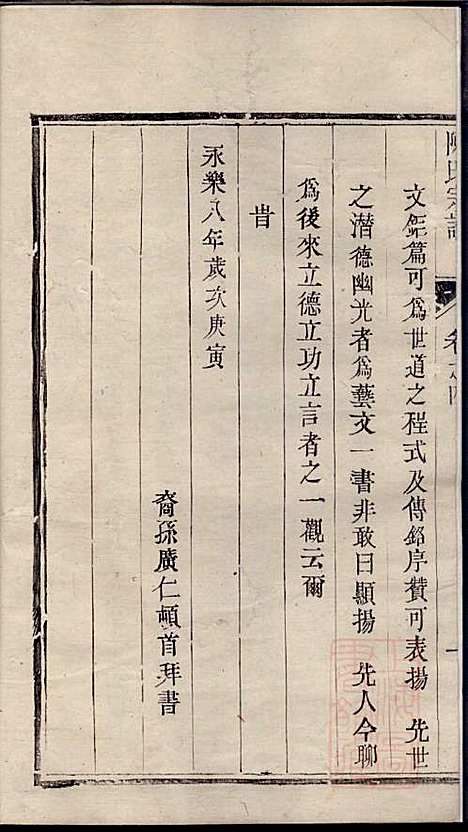 陳氏宗譜
卷之四
文鉅篇可為世道之程式及傳銘序贊可表揚 先世
之潛德幽光者為藝文一書非敢曰顯揚 先人今聊
為後來立德立功立言者之一觀云爾
旹
永樂八年歲次庚寅
裔孫廣仁頓首拜書